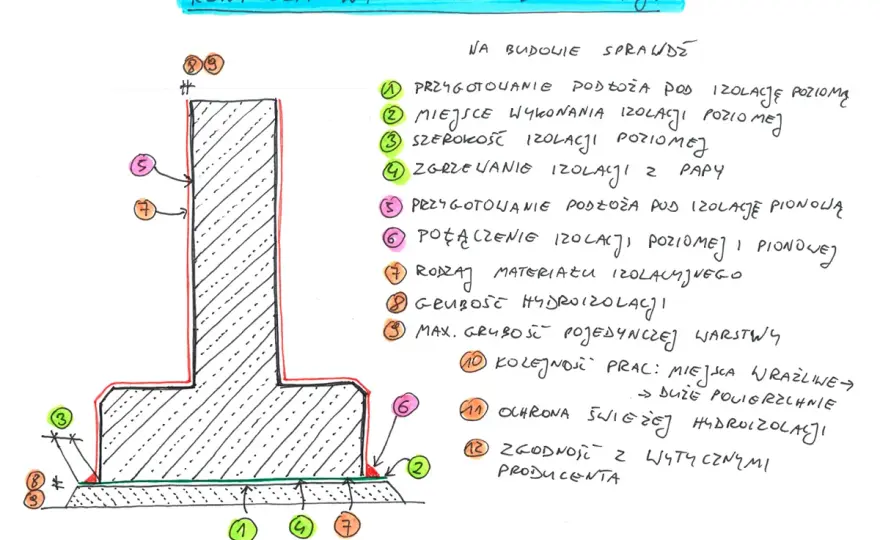 NA BUDOWIE SPRAWDŹ
1 PRZYGOTOWANIE PODŁOŻA POD IZOLACJĘ POZIOMĄ
2 MIEJSCE WYKONANIA IZOLACJI POZIOMEJ
3 SZEROKOŚĆ IZOLACJI POZIOMEJ
4 ZGRZEWANIE IZOLACJI Z PAPY
5 PRZYGOTOWANIE PODŁOŻA POD IZOLACJĘ PIONOWĄ
6 POŁĄCZENIE IZOLACJI POZIOMEJ I PIONOWEJ
7 RODZAJ MATERIAŁU IZOLACYJNEGO
8 GRUBOŚĆ HYDROIZOLACJI
9 MAX. GRUBOŚĆ POJEDYNCZEJ WARSTWY
10 KOLEJNOŚĆ PRAC: MIEJSCA WRAŻLIWE →
→ DUŻE POWIERZCHNIE
11 OCHRONA ŚWIEŻEJ HYDROIZOLACJI
12 ZGODNOŚĆ Z WYTYCZNYMI
PRODUCENTA
8 9
5
7
3
6
2
8
9
1 4 7